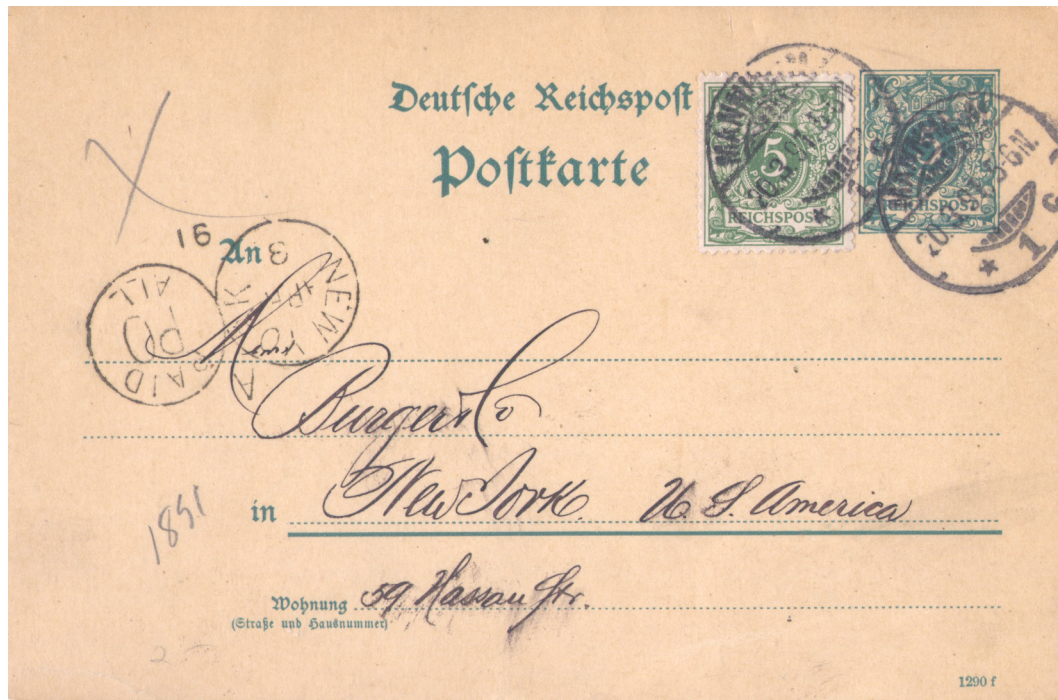 Deutsche Reichspost
Postkarte
5
REICHSPOST
REICHSPOST
MANNHEIM
20.3.91.5-6N.
* 1
An
NEW YORK
91
PAID
ALL
Burger & Co
in New York. U. S. America
1891
Wohnung 59 Nassau Str.
(Straße und Hausnummer)
1290 f